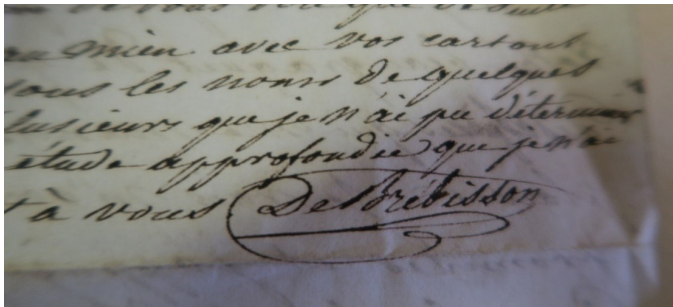 mien avec vos cartons
sous les noms de quelques
plusieurs que je n'ai pu déterminer
étude approfondie) que je n'ai
t à vous DeBrébisson